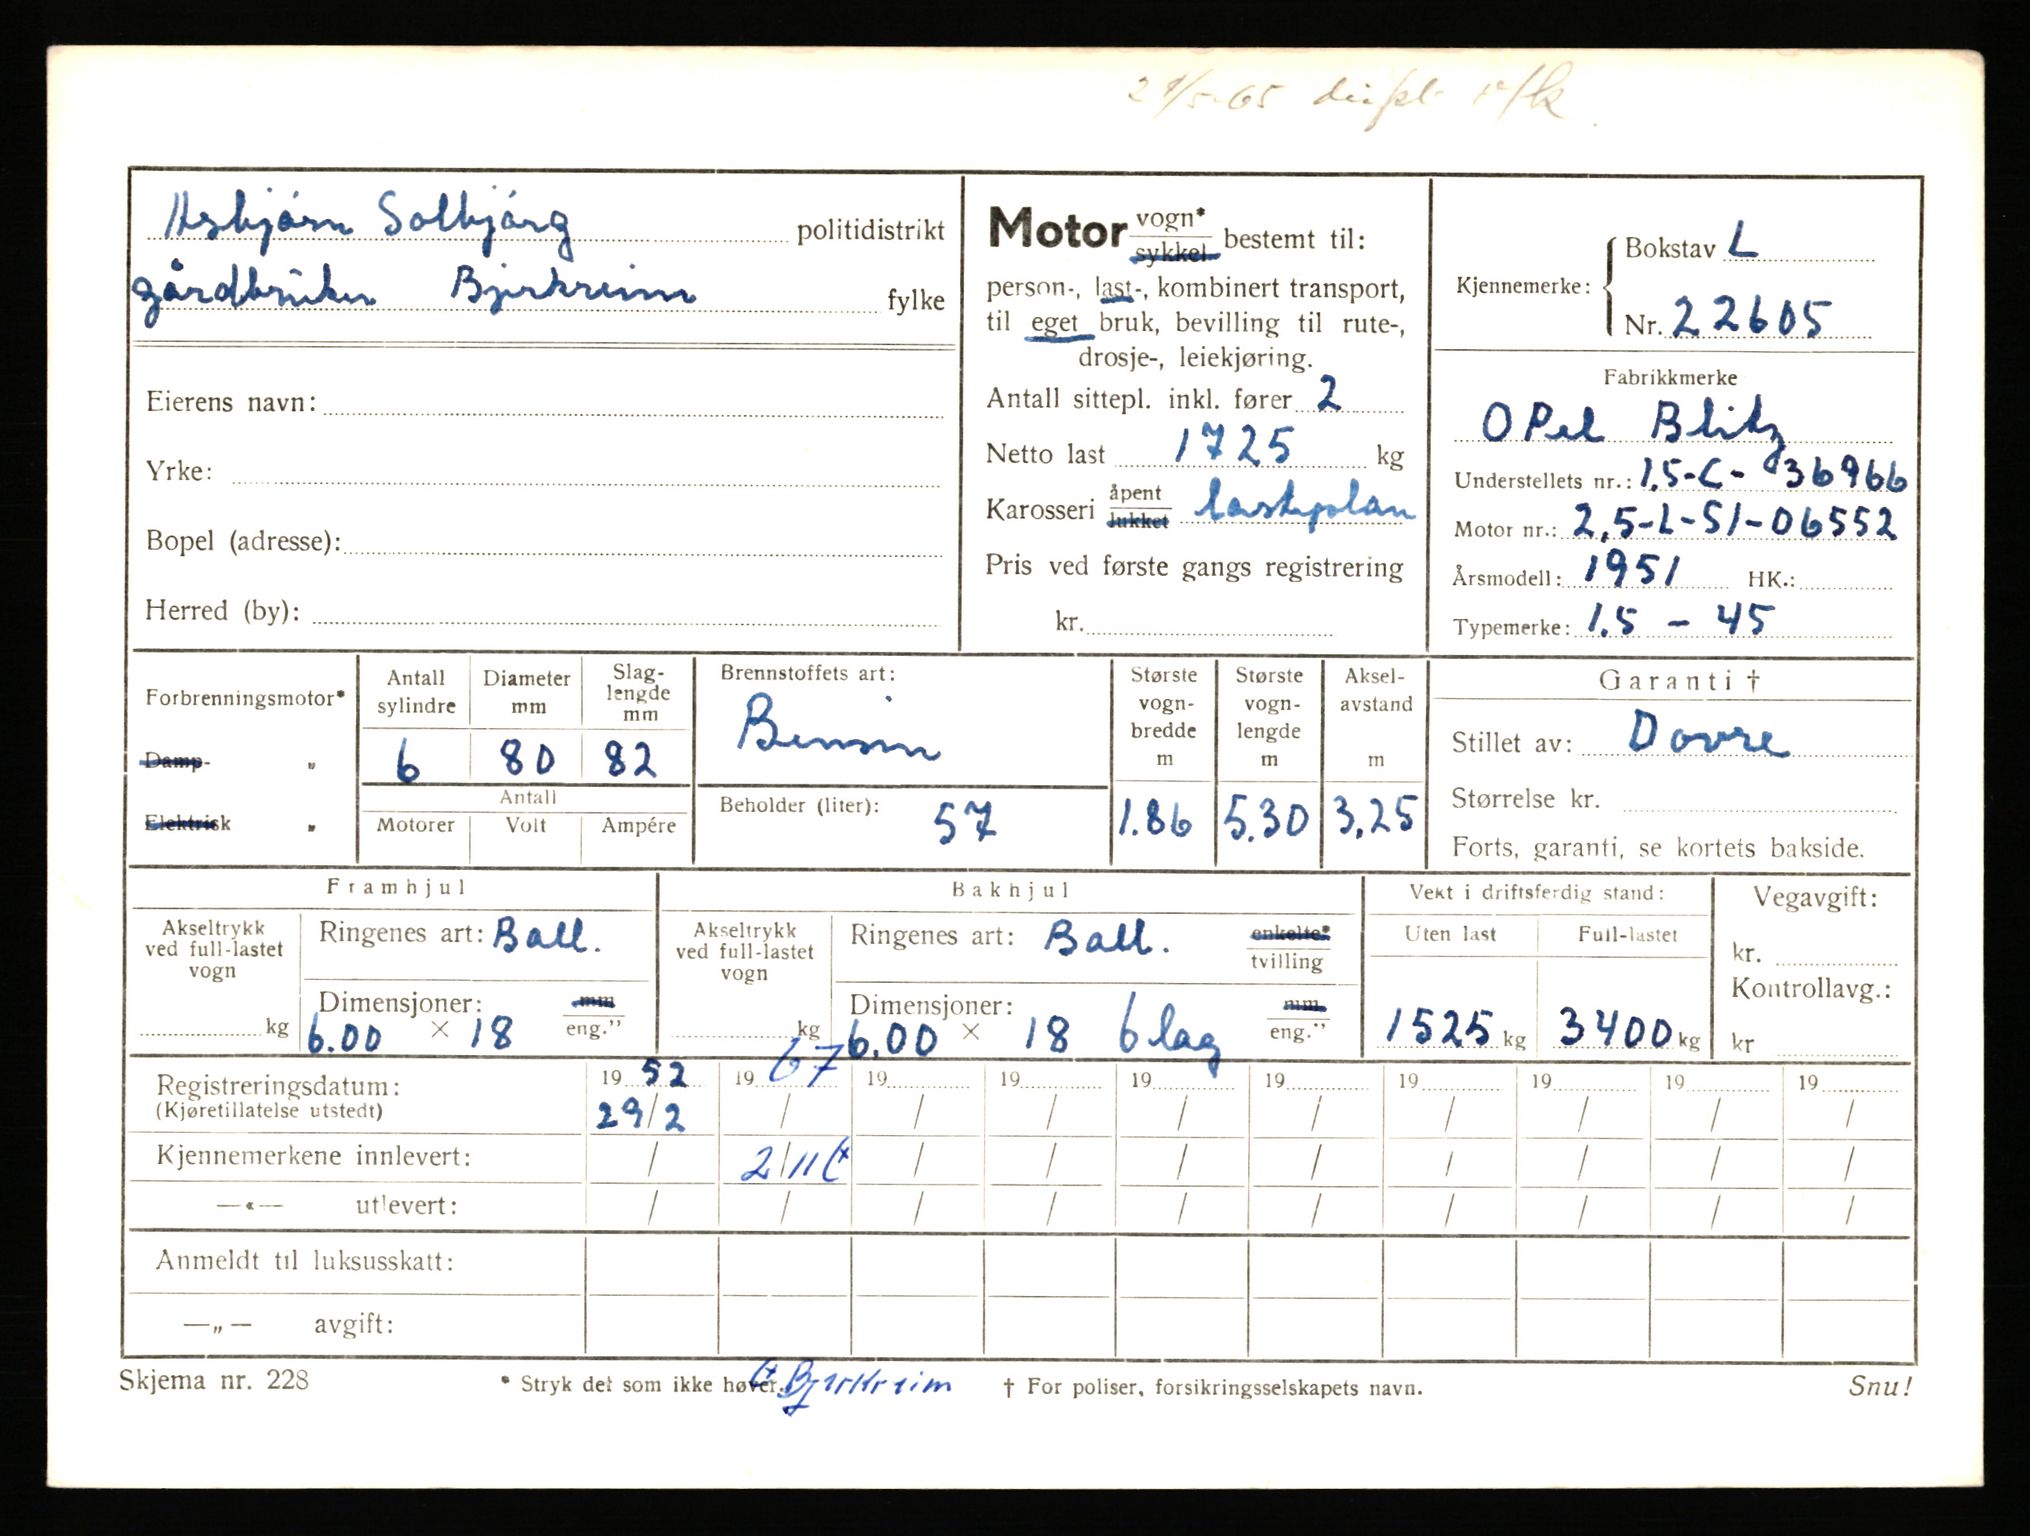 29/5-65
Asbjørn Solbjørg politidistrikt
gårdbruker Bjerkreim fylke
Eierens navn:
Yrke:
Bopel (adresse):
Herred (by):
Motor vogn* sykkel bestemt til:
person-, last-, kombinert transport,
til eget bruk, bevilling til rute-,
drosje-, leiekjøring.
Antall sittepl. inkl. fører 2
Netto last 1725 kg
Karosseri åpent lukket lasteplan
Pris ved første gangs registrering
kr.
Kjennemerke: Bokstav L
Nr. 22605
Fabrikkmerke
OPel Blitz
Understellets nr.: 1.5-C- 36966
Motor nr.: 2,5-L-51-06552
Årsmodell: 1951 HK.:
Typemerke: 1.5 - 45
Forbrenningsmotor*
Damp- „
Elektrisk „
Antall sylindre Diameter mm Slag-lengde mm
6 80 82
Antall
Motorer Volt Ampére
Brennstoffets art:
Bensin
Beholder (liter): 57
Største vogn-bredde m Største vogn-lengde m Aksel-avstand m
1.86 5.30 3,25
Garanti †
Stillet av: Dovre
Størrelse kr.
Forts, garanti, se kortets bakside.
Framhjul
Akseltrykk ved full-lastet vogn
kg
Ringenes art: Ball.
Dimensjoner: mm eng.”
6.00 × 18
Bakhjul
Akseltrykk ved full-lastet vogn
kg
Ringenes art: Ball. enkelte* tvilling
Dimensjoner: mm. eng.”
6.00 × 18 6 lag
Vekt i driftsferdig stand:
Uten last Full-lastet
1525 kg 3400 kg
Vegavgift:
kr.
Kontrollavg.:
kr
Registreringsdatum: 19 52 19 67 19 19 19 19 19 19 19 19
(Kjøretillatelse utstedt) 29/2 / / / / / / / / /
Kjennemerkene innlevert: / 2/11 (x / / / / / / / /
—«— utlevert: / / / / / / / / / /
Anmeldt til luksusskatt:
—„— avgift:
Skjema nr. 228 * Stryk det som ikke høver. (x Bjerkreim † For poliser, forsikringsselskapets navn. Snu!